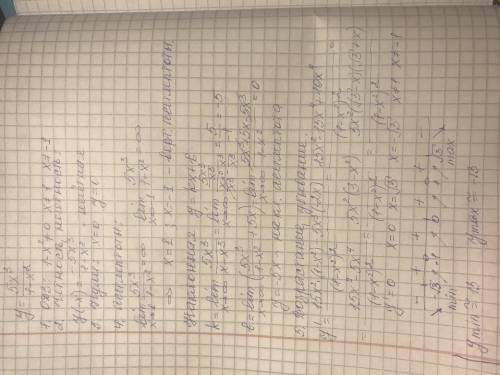 y = 5x³/(1-x²)
1. ОДЗ: 1-x² ≠ 0 x ≠ 1 x ≠ -1
2. Четность, нечетность:
y(-x) = -5x³/(1-x²) нечетная
3. x = 0 y = 0
4. Асимптоты:
lim x→1 5x³/(1-x²) = ∞ lim x→-1 5x³/(1-x²) = ∞
⇒ x = 1; x = -1 - верт. асимптоты
Наклонная y = kx + b
k = lim x→∞ 5x³/(x-x³) = = -5
b = lim x→∞ (5x³/(1-x²) + 5x) = lim x→∞ (5x³+5x-5x³)/(1-x²) = 0
y = -5x - накл. асимптота
5. Возрастание, убывание.
y' = (15x²(1-x²) - 5x³(-2x))/(1-x²)² = (15x² - 15x⁴ + 10x⁴)/(1-x²)² =
= (15x² - 5x⁴)/(1-x²)² = 5x²(3-x²)/(1-x²)² = 5x²(√3-x)(√3+x)/(1-x²)²
y' = 0 x = 0 x = √3 x = -√3 x ≠ 1 x ≠ -1
- + + + + -
-√3 -1 0 1 √3
min max
y min ≈ 13 y max ≈ -13